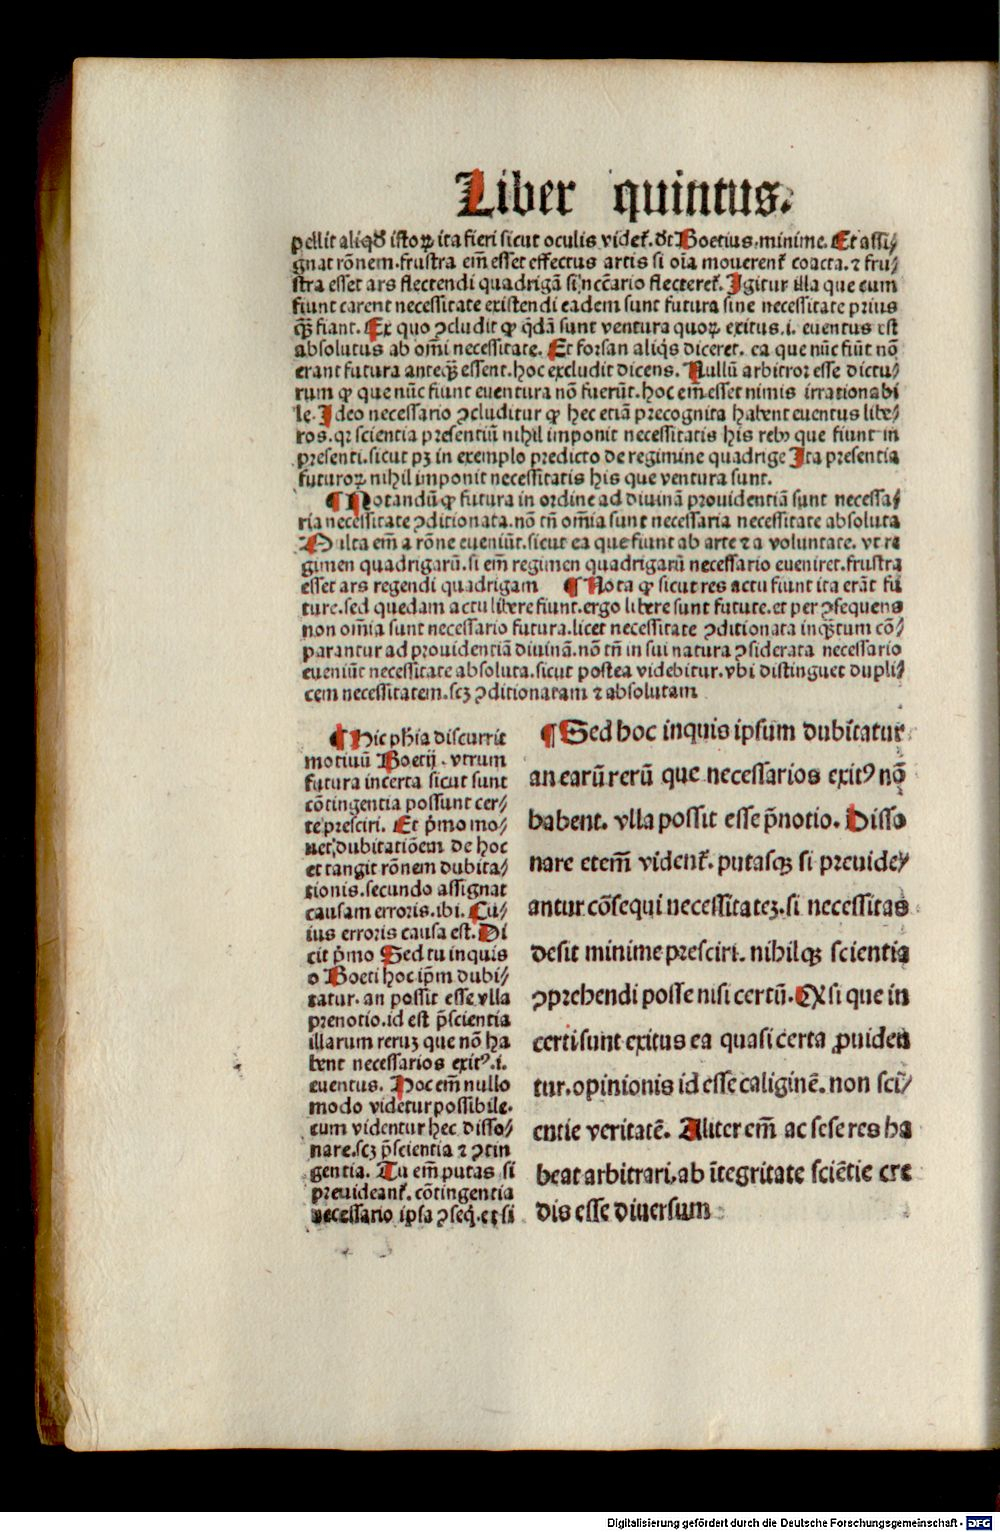 Liber quintus.
pellit aliqd̛ istoꝝ ita fieri sicut oculis videt᷑. dt Boetius.minime. Et assi⸗
gnat rōnem.frustra em̄ esset effectus artis si oīa mouerent᷑ coacta.⁊ fru⸗
stra esset ars flectendi quadrigā si nc̄cario flecteret᷑. Igitur illa que cum
fiunt carent necessitate existendi eadem sunt futura sine necessitate prius
qꝫ̄ fiant. Ex quo ꝯcludit ꝙ q̄dā sunt ventura quoꝝ exitus.i. euentus est
absolutus ab om̄i necessitate. Et forsan aliq̄s diceret. ea que nūc fiūt nō
erant futura anteqꝫ̄ essent.hoc excludit dicens. Nullū arbitror esse dictu⸗
rum ꝙ que nūc fiunt euentura nō fuerūt.hoc em̄ esset nimis irrationabi
le. Ideo necessario ꝯcluditur ꝙ hec etiā precognita habent euentus libe⸗
ros.qꝛ scientia presentiū nihil imponit necessitatis his rebꝰ que fiunt in
presenti.sicut pꝫ in exemplo predicto de regimine quadrige Ita presentia
futuroꝝ nihil imponit necessitatis his que ventura sunt.
¶ Notandū ꝙ futura in ordine ad diuinā prouidentiā sunt necessa⸗
ria necessitate ꝯditionata.nō tn̄ om̄ia sunt necessaria necessitate absoluta
Multa em̄ a rōne eueniūt.sicut ea que fiunt ab arte ⁊ a voluntate. vt re
gimen quadrigarū.si em̄ regimen quadrigarū necessario eueniret.frustra
esset ars regendi quadrigam ¶ Nota ꝙ sicut res actu fiunt ita erāt fu
ture.sed quedam actu libere fiunt.ergo libere sunt future.et per ꝯsequens
non om̄ia sunt necessario futura.licet necessitate ꝯditionata inqꝫ̄tum cō⸗
parantur ad prouidentiā diuinā.nō tn̄ in sui natura ꝯsiderata necessario
eueniūt necessitate absoluta.sicut postea videbitur.vbi distinguet dupli⸗
cem necessitatem.scꝫ ꝯditionatam ⁊ absolutam
¶ Hic ph̄ia discurrit
motiuū Boetij . vtrum
futura incerta sicut sunt
cōtingentia possunt cer⸗
te presciri. Et p̄mo mo⸗
uet dubitatiōem de hoc
et tangit rōnem dubita⸗
tionis.secundo assignat
causam erroris.ibi. Cu⸗
ius erroris causa est. Di
cit p̄mo Sed tu inquis
o Boeti hoc ip̄m dubi⸗
tatur. an possit esse vlla
prenotio.id est p̄scientia
illarum reruꝫ que nō ha
bent necessarios exitꝰ.i.
euentus. Hoc em̄ nullo
modo videtur possibile.
cum videntur hec disso⸗
nare.scꝫ p̄scientia ⁊ ꝯtin
gentia. Tu em̄ putas si
preuideant᷑. cōtingentia
necessario ipsa ꝯseq̄.et si
¶ Sed hoc inquis ipsum dubitatur
an earū rerū que necessarios exitꝰ nō
habent. vlla possit esse p̄notio. Disso
nare etem̄ vident᷑. putasqꝫ si preuide⸗
antur cōsequi necessitateꝫ.si necessitas
desit minime presciri. nihilqꝫ scientia
ꝯprehendi posse nisi certū. Qꝙ si que in
certi sunt exitus ea quasi certa ꝓuiden
tur.opinionis id esse caliginē. non sci⸗
entie veritatē. Aliter em̄ ac sese res ha
beat arbitrari.ab ītegritate sciētie cre
dis esse diuersum
Digitalisierung gefördert durch die Deutsche Forschungsgemeinschaft - DFG